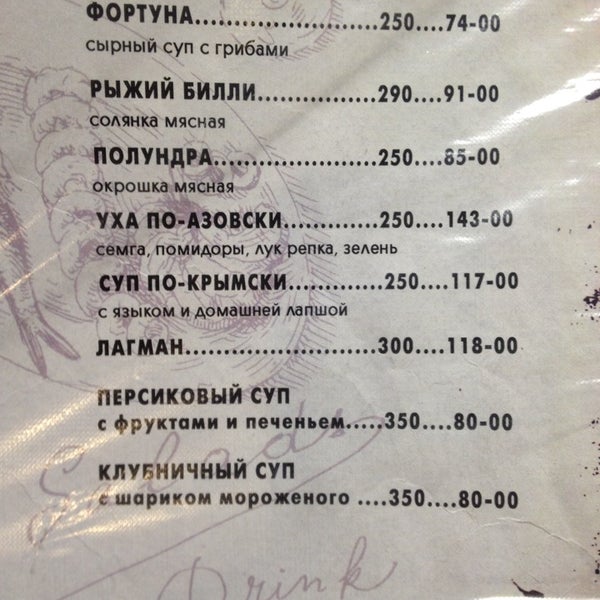 ФОРТУНА......................250....74-00
сырный суп с грибами
РЫЖИЙ БИЛЛИ..............290....91-00
солянка мясная
ПОЛУНДРА...................250....85-00
окрошка мясная
УХА ПО-АЗОВСКИ...........250....143-00
семга, помидоры, лук репка, зелень
СУП ПО-КРЫМСКИ...........250....117-00
с языком и домашней лапшой
ЛАГМАН......................300....118-00
ПЕРСИКОВЫЙ СУП
с фруктами и печеньем.....350....80-00
КЛУБНИЧНЫЙ СУП
с шариком мороженого ....350....80-00
Salads
Drink